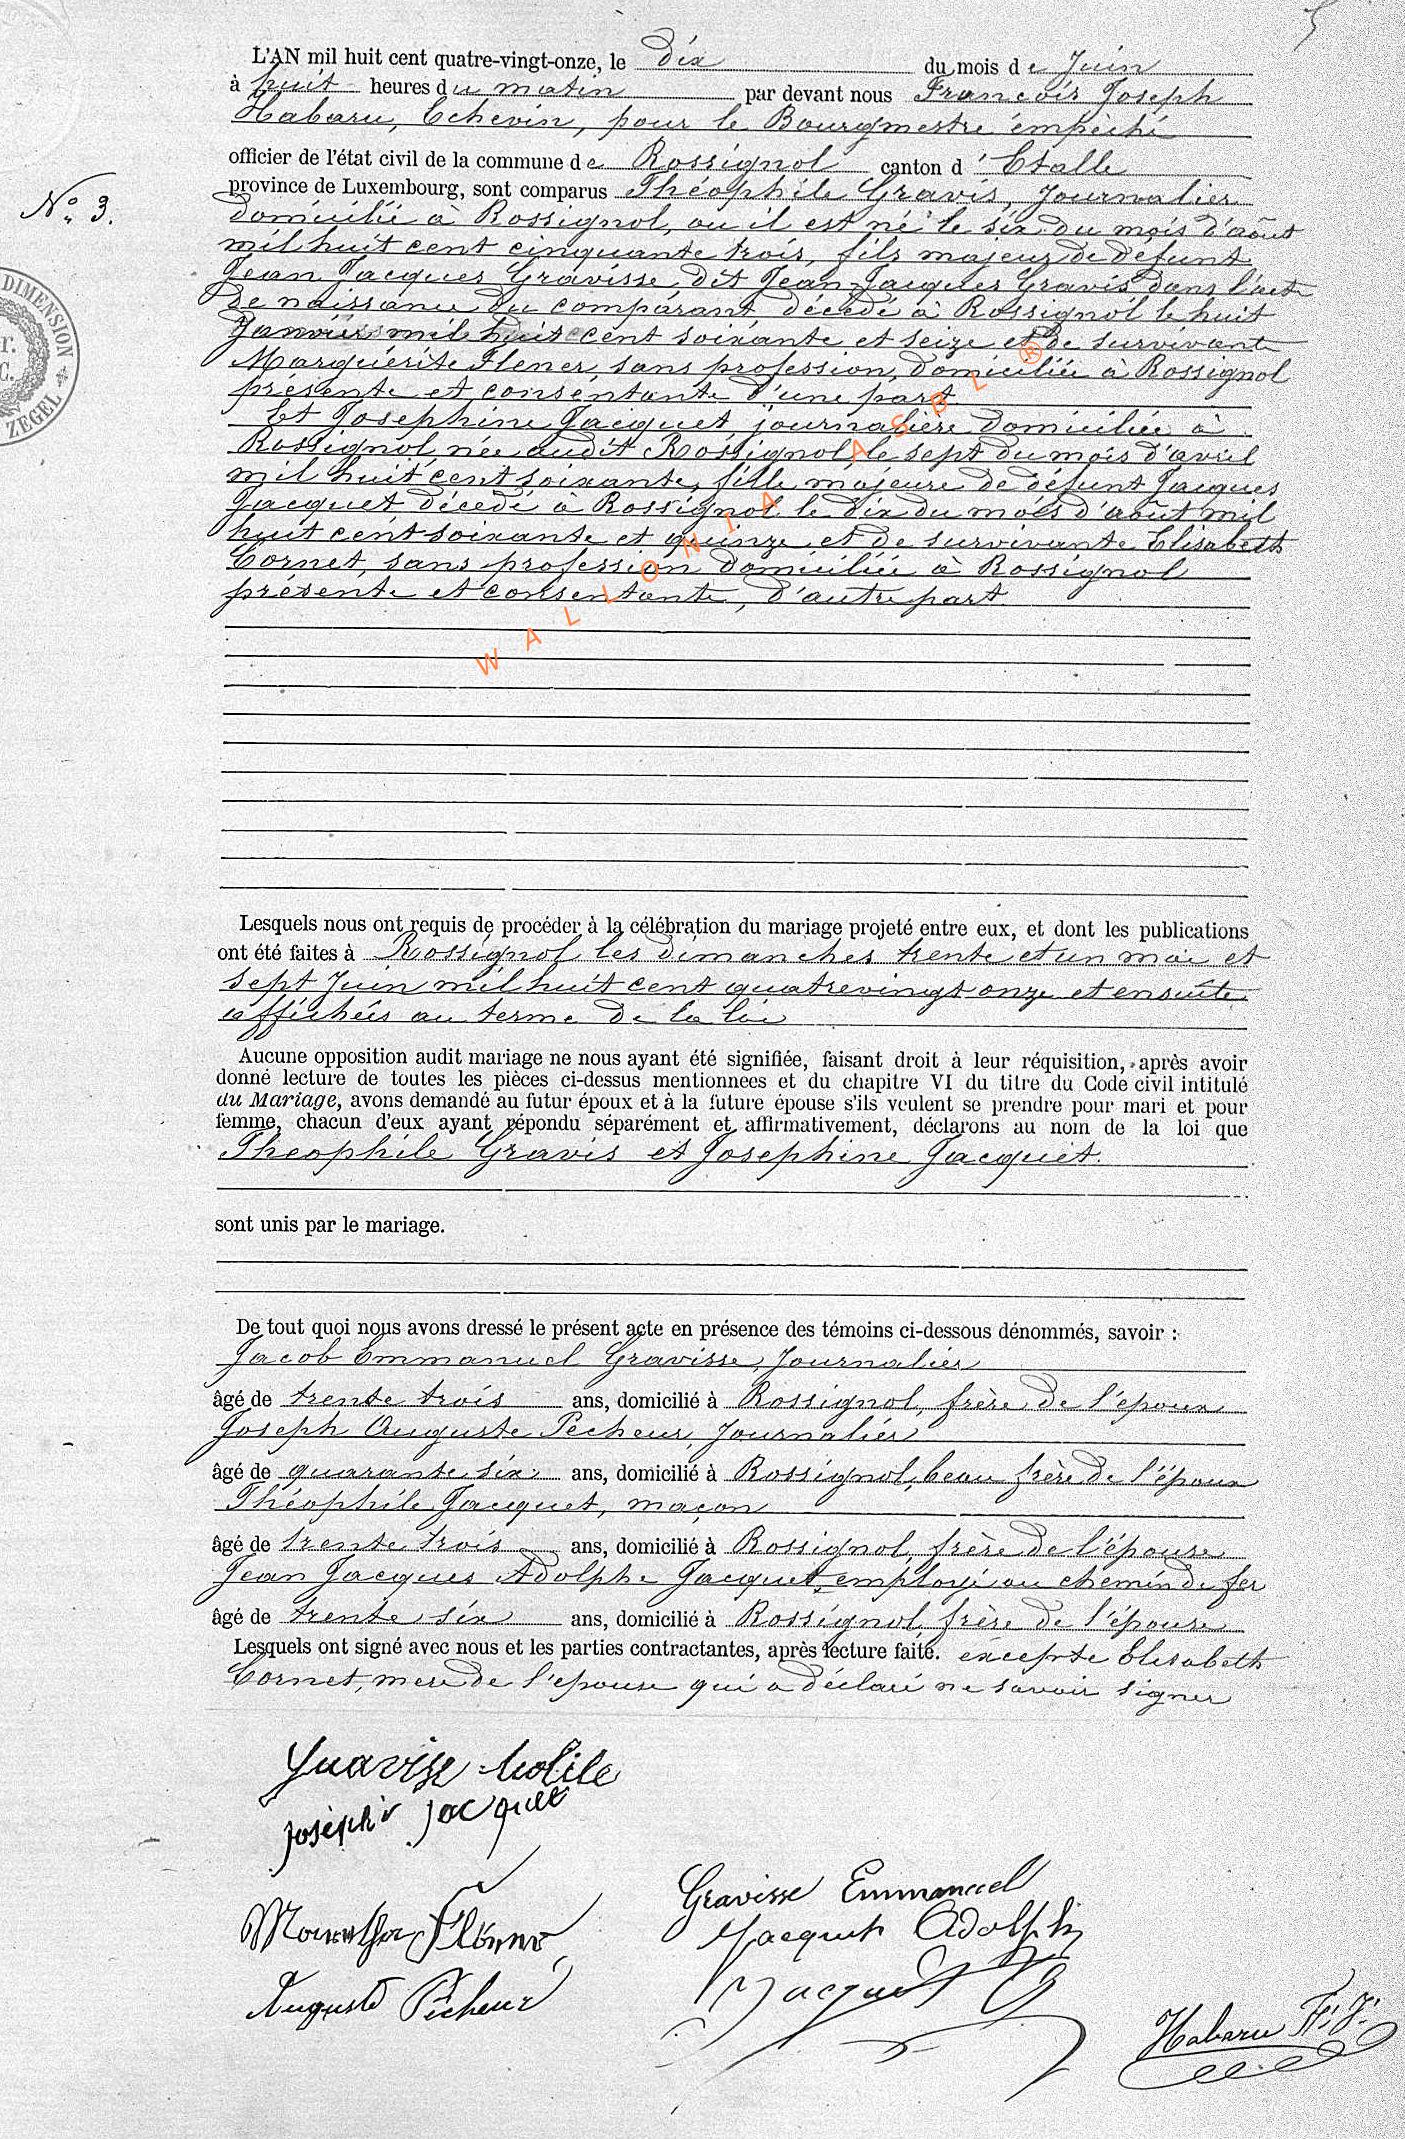 L'AN mil huit cent quatre-vingt-onze, le dix du mois de Juin
à huit heures du matin par devant nous François Joseph
Habaru, Echevin, pour le Bourgmestre empêché
officier de l'état civil de la commune de Rossignol canton d'Etalle
province de Luxembourg, sont comparus Théophile Gravis, Journalier
N° 3.
domicilié à Rossignol, ou il est né le six du mois d'août
mil huit cent cinquante trois, fils majeur de défunt
Jean Jacques Gravisse, dit Jean-Jacques Gravis dans l'acte
de naissance du comparant décédé à Rossignol le huit
Janvier mil huit cent soixante et seize et de survivante
Marguérite Flener, sans profession, domiciliée à Rossignol
présente et consentante d'une part
Et Josephine Jacquet, journalière domiciliée à
Rossignol, née audit Rossignol, le sept du mois d'avril
mil huit cent soixante, fille majeure de défunt Jacques
Jacquet décédé à Rossignol le dix du mois d'août mil
huit cent soixante et quinze et de survivante Elisabeth
Cornet, sans profession domiciliée à Rossignol
présente et consentante, d'autre part
DIMENSION
r.
C.
ZEGEL
WALLONIA ASBL ®
Lesquels nous ont requis de procéder à la célébration du mariage projeté entre eux, et dont les publications
ont été faites à Rossignol les dimanches trente et un mai et
sept Juin mil huit cent quatrevingt onze et ensuite
affichées au terme de la loi
Aucune opposition audit mariage ne nous ayant été signifiée, faisant droit à leur réquisition, après avoir
donné lecture de toutes les pièces ci-dessus mentionnees et du chapitre VI du titre du Code civil intitulé
du Mariage, avons demandé au futur époux et à la future épouse s'ils veulent se prendre pour mari et pour
femme, chacun d'eux ayant répondu séparément et affirmativement, déclarons au nom de la loi que
Theophile Gravis et Josephine Jacquet.
sont unis par le mariage.
De tout quoi nous avons dressé le présent acte en présence des témoins ci-dessous dénommés, savoir :
Jacob Emmanuel Gravisse, Journalier
âgé de trente trois ans, domicilié à Rossignol, frère de l'époux
Joseph Auguste Pecheur, Journalier
âgé de quarante six ans, domicilié à Rossignol, beau frère de l'époux
Théophile Jacquet, maçon
âgé de trente trois ans, domicilié à Rossignol, frère de l'épouse
Jean Jacques Adolphe Jacquet, employé au chemin de fer
âgé de trente six ans, domicilié à Rossignol, frère de l'épouse
Lesquels ont signé avec nous et les parties contractantes, après lecture faite. excepte Elisabeth
Cornet, mere de l'epouse qui a déclaré ne savoir signer
Gravisse
Joséphi Jacquet
Gravisse Emmanuel
Jacquet Adolphe
Auguste Pêcheur
Jacquet
Habaru F. J.